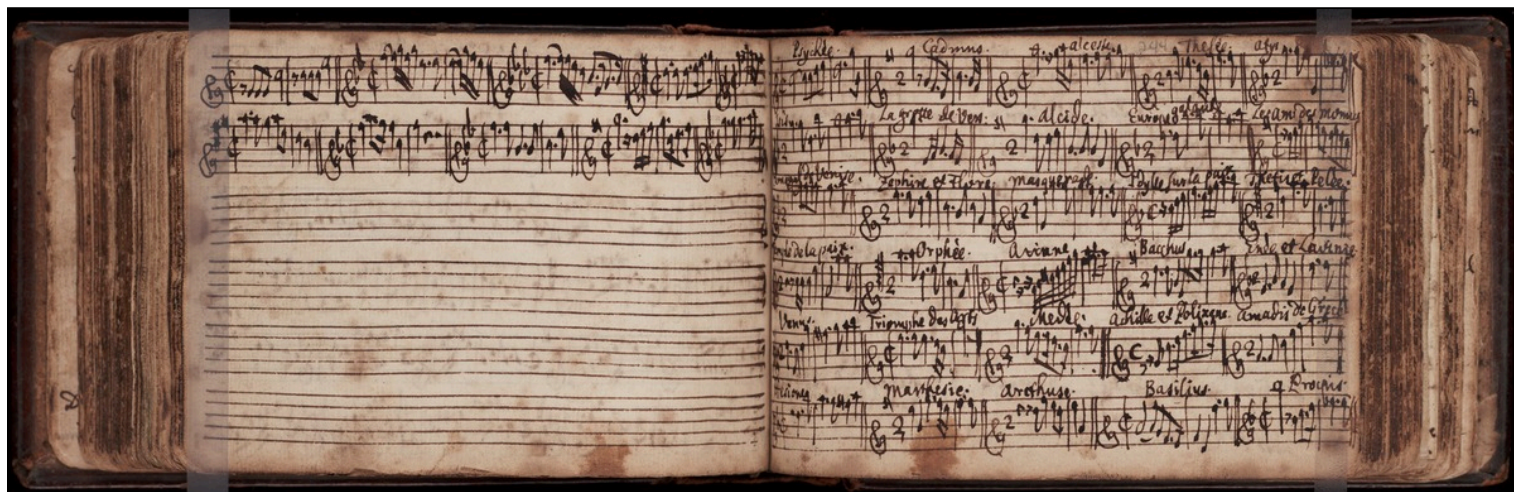 Psychée. Cadmus. alceste. Thesée. atys
La grotte de Ver. alcide. Europe galante Les am des momus
Venise. Zephire et Flore. Masquerade. Idylle sur la paix Thetis et Pelée.
de la paix. Orphée. Arianne Bacchus Enée et Lavinie
Triomphe des Arts Medée. Achille et Polixene. Amadis de Grece
Marthesie. Arethuse. Basilius. Procris